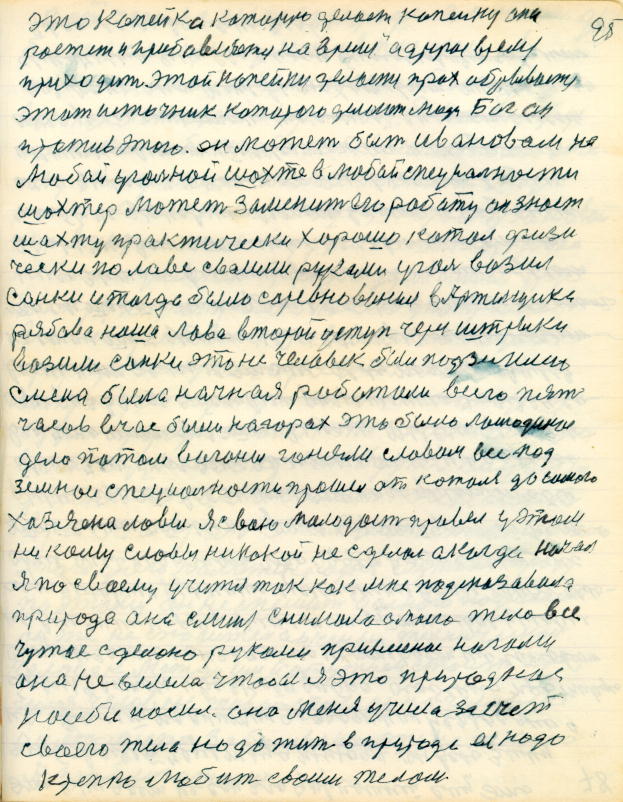 95
это копейка которую делает копейку она
ростет и прибовляется на время а другое время
приходит этой копейки делается прах обрывается
этот источник которого делают люди Бог он
против этого. он может быт Ивановом на
любой угольной шохте в любой специалности
шохтер может заменит его работу он знает
шахту практически хорошо котал физи
чески по лаве своими руками угол возил
санки и тогда было соревнования в Артемщика
рябова наша лава второй уступ чери штреки
возили санки это не человек были подземили
смена была начная работали всего пят
часов в час были на горах это было лошодиная
дело потом вагоны гоняли словом все под
земной специалности прошел от коталя до самого
хазяена лавы я свою молодост провел у этом
ни кому словы никокой не сделол а когда начал
я по своему учится так как мне подсказавала
природа она с миня снимала с моего тела все
чужое сделоно руками принесеное ногами
она не велела чтобы я это природное
на себе носил. она меня учила за счет
своего тела надо жит в природе ее надо
крепко любит своим телом